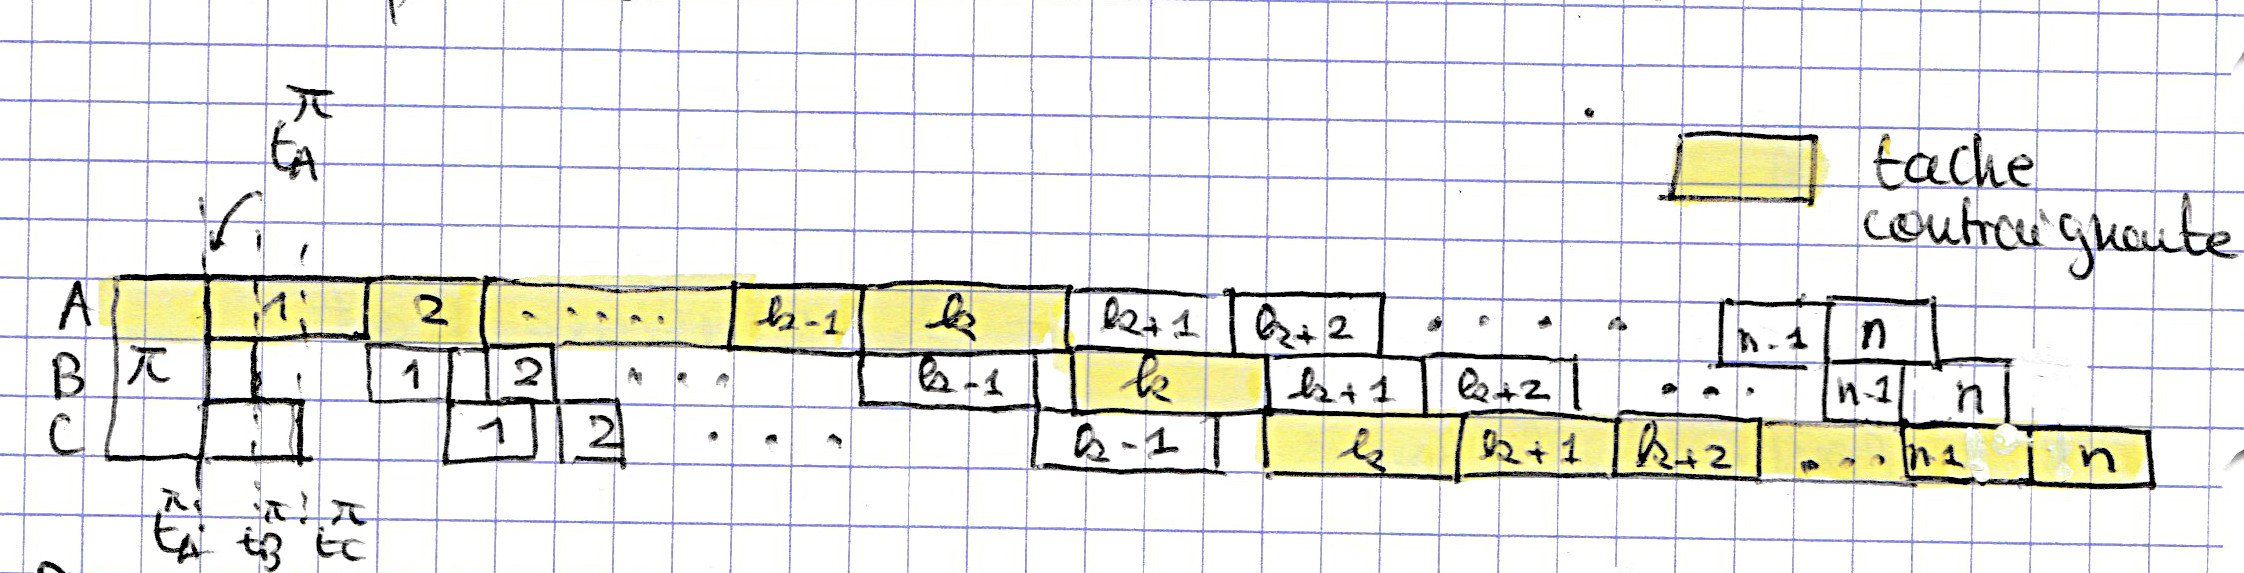 π
tA
tache
contraignante
A 1 2 ..... k-1 k k+1 k+2 .... n-1 n
B π 1 2 ... k-1 k k+1 k+2 ... n-1 n
C 1 2 ... k-1 k k+1 k+2 ... n-1 n
π π π
tA tB tC